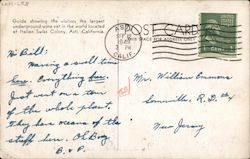 Guide showing the visitors the largest
underground wine vat in the world located
at Italian Swiss Colony, Asti, California.
POST CARD
THIS SPACE FOR ADDRESS ONLY
CALIF.
Hi Bill:
Having a swell time
here. Everything fine.
Just went on a tour
of the whole plant.
They have oceans of the
stuff here. Oh Boy
B. + P.
Mr. William Emmons
Somerville, R.D. #4
New Jersey